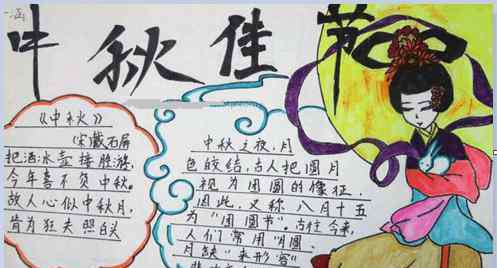 中秋佳节
《中秋》
宋戴石屏
把酒冰壶接胜游,
今年喜不负中秋。
故人心似中秋月,
肯为狂夫照白头
中秋之夜,月
色皎洁,古人把圆月
视为团圆的像征,
因此,又称八月十五
为“团圆节”。古往今来,
人们常用“月圆、
月缺”来形容